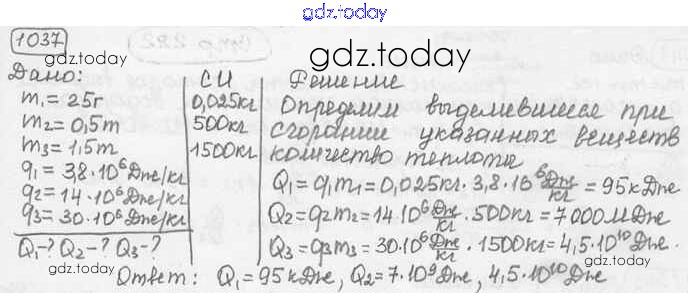 gdz.today
1037
gdz.today
Дано:
СИ
Решение
m₁ = 25г
m₂ = 0,5т
m₃ = 1,5т
q₁ = 3,8·10⁶Дж/кг
q₂ = 14·10⁶Дж/кг
q₃ = 30·10⁶Дж/кг
Q₁-? Q₂-? Q₃-?
0,025кг
500кг
1500кг
Определим выделившееся при
сгорании указанных веществ
количество теплоты
Q₁ = q₁m₁ = 0,025кг·3,8·10⁶ Дж/кг = 95кДж
Q₂ = q₂m₂ = 14·10⁶ Дж/кг · 500кг = 7000МДж
Q₃ = q₃m₃ = 30·10⁶ Дж/кг · 1500кг = 4,5·10¹⁰ Дж.
gdz.today
Ответ: Q₁ = 95кДж, Q₂ = 7·10⁹Дж, 4,5·10¹⁰Дж
gdz.today